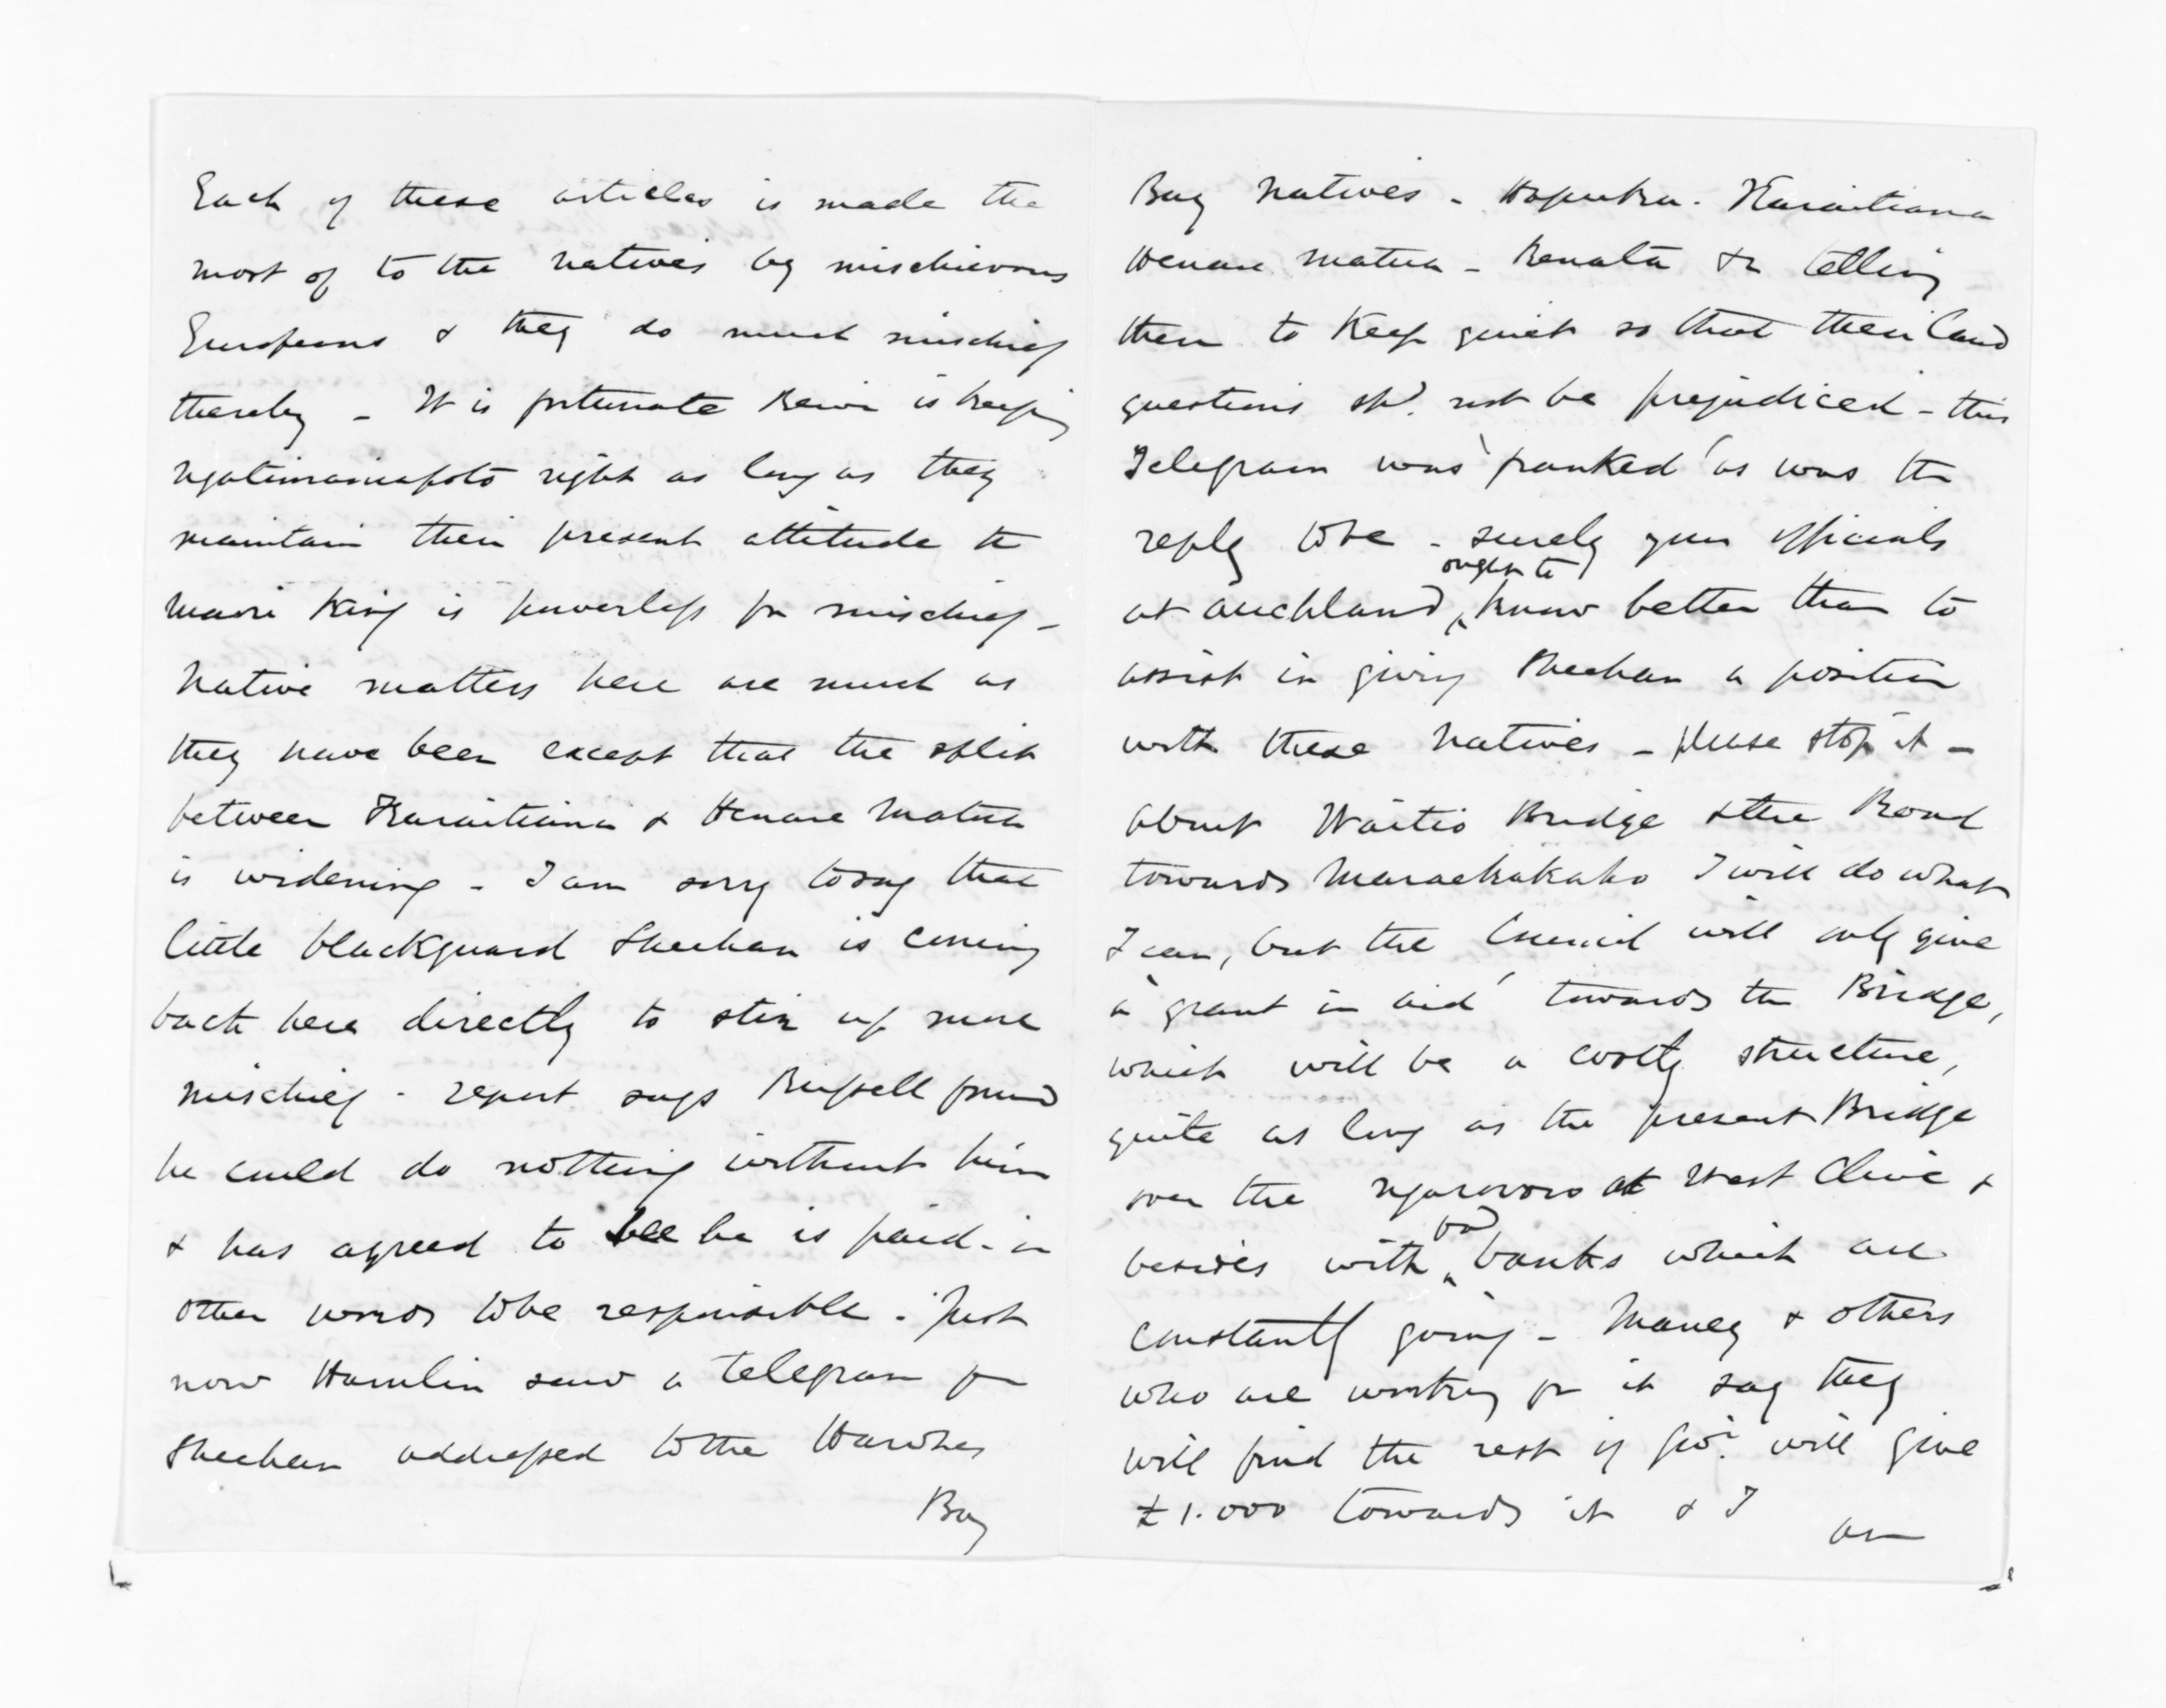 Each of these articles is made the
most of to the natives by mischievous
Europeans & they do much mischief
thereby - It is fortunate Rewi is keeping
Ngatimaniapoto right as long as they
maintain their present attitude the
Maori King is powerless for mischief -
Native matters here are much as
they have been except that the split
between Karaitiana & Henare Matua
is widening - I am sorry to say that
little blackguard Sheehan is coming
back here directly to stir up more
mischief - report says Russell found
he could do nothing without him
& has agreed to see he is paid - in
other words to be responsible. Just
now Hamlin saw a telegram from
Sheehan addressed to the Hawkes
Bay
Bay Natives - Karaitiana
Henare Matua - Renata &c telling
them to keep quiet so that their land
questions shd. not be prejudiced - this
Telegram was 'franked' as was the
reply to be - surely your officials
at Auckland ought to know better than to
assist in giving Sheehan a position
with these Natives - please stop it -
About Waitio Bridge & the Road
towards Maraekakaho I will do what
I can, but the Council will only give
a 'grant in aid' towards the Bridge,
which will be a costly structure,
quite as long as the present Bridge
over the Ngaruroro at West Clive &
besides with bad banks which are
constantly going - Maney & others
who are working for it say they
will find the rest if Govt. will give
£1.000 towards it & I
am